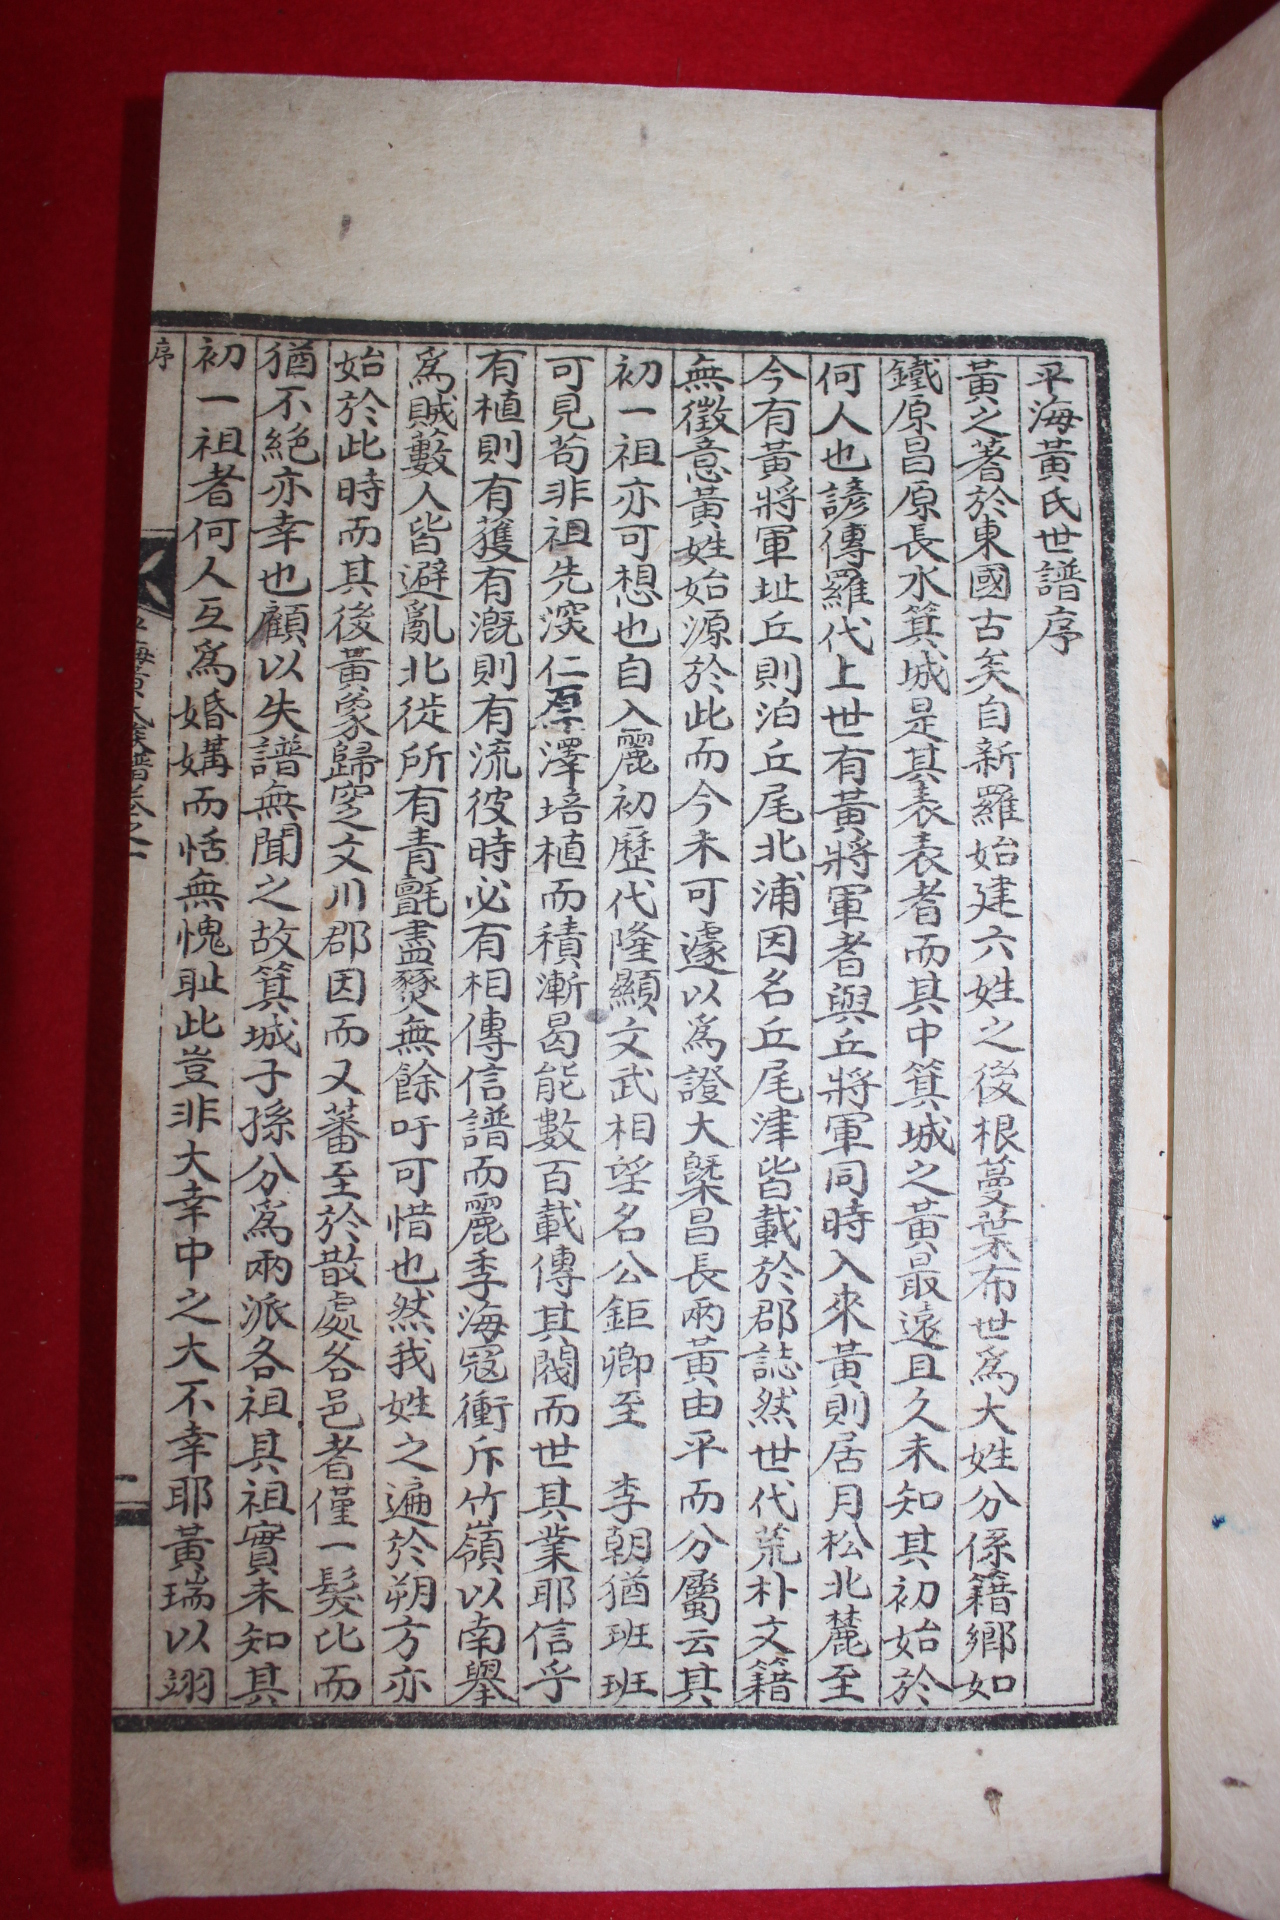 平海黃氏世譜序
黃之著於東國古矣自新羅始建六姓之後根蔓葉布世爲大姓分係籍鄉如
鐵原昌原長水箕城是其表表者而其中箕城之黃最遠且久未知其初始於
何人也諺傳羅代上世有黃將軍者與丘將軍同時入來黃則居月松北麓至
今有黃將軍址丘則泊丘尾北浦因名丘尾津皆載於郡誌然世代荒朴文籍
無徵意黃姓始源於此而今未可遽以爲證大槩昌長兩黃由平而分屬云其
初一祖亦可想也自入麗初歷代隆顯文武相望名公鉅卿至 李朝猶班班
可見苟非祖先深仁厚澤培植而積漸曷能數百載傳其閥而世其業耶信乎
有植則有獲有漑則有流彼時必有相傳信譜而麗季海寇衝斥竹嶺以南舉
爲賊藪人皆避亂北徙所有青氈盡爕無餘吁可惜也然我姓之遍於朔方亦
始於此時而其後黃象歸窆文川郡因而又蕃至於散處各邑者僅一髮比而
猶不絕亦幸也顧以失譜無聞之故箕城子孫分爲兩派各祖其祖實未知其
初一祖者何人互爲婚媾而恬無愧耻此豈非大幸中之大不幸耶黃瑞以翊
序